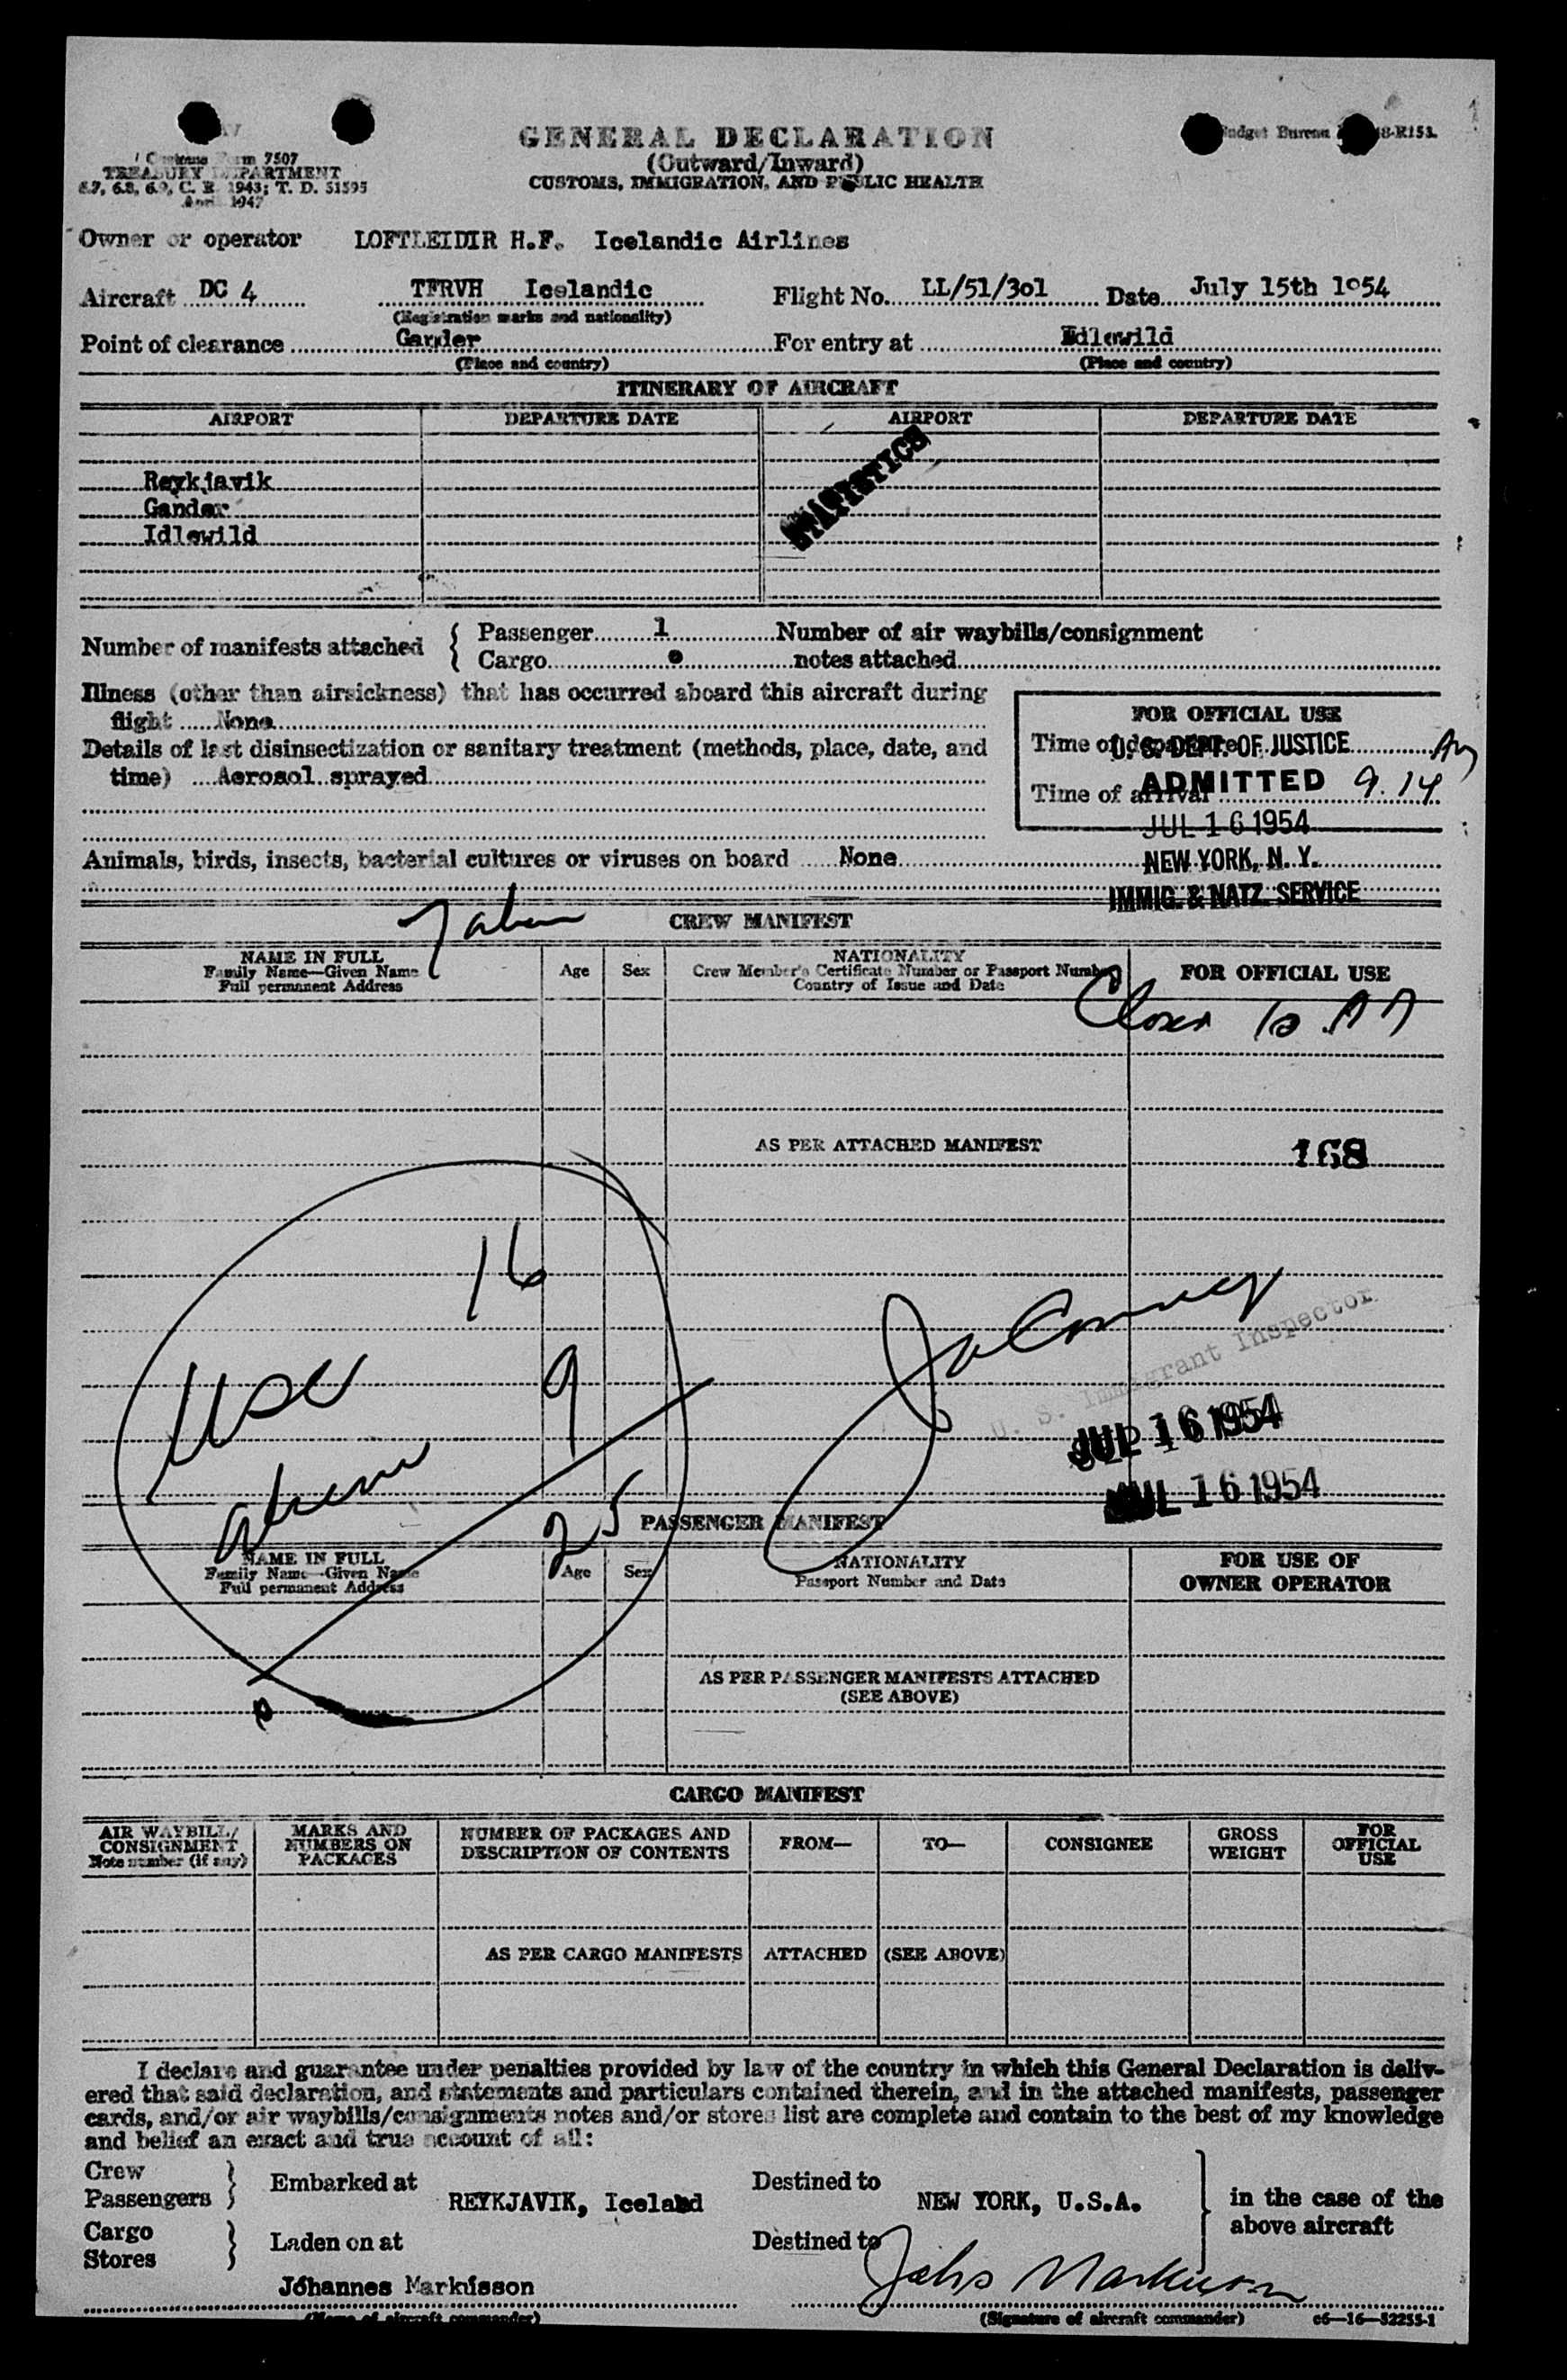 GENERAL DECLARATION
(Outward/Inward)
CUSTOMS, IMMIGRATION, AND PUBLIC HEALTH
Customs Form 7507
TREASURY DEPARTMENT
6.7, 6.8, 6.9, C. R. 1943; T. D. 51595
April 1947
Budget Bureau 48-R153.
Owner or operator LOFTLEIDIR H.F. Icelandic Airlines
Aircraft DC 4 TFRVH Icelandic Flight No. LL/51/3o1 Date July 15th 1954
(Registration marks and nationality)
Point of clearance Gander For entry at Idlewild
(Place and country) (Place and country)
ITINERARY OF AIRCRAFT
AIRPORT DEPARTURE DATE AIRPORT DEPARTURE DATE
STATISTICS
Reykjavik
Gander
Idlewild
Number of manifests attached { Passenger 1 Number of air waybills/consignment
Cargo o notes attached
Illness (other than airsickness) that has occurred aboard this aircraft during
flight None
Details of last disinsectization or sanitary treatment (methods, place, date, and
time) Aerosol sprayed
FOR OFFICIAL USE
Time of departure
U. S. DEPT. OF JUSTICE
Time of arrival 9.14
ADMITTED
JUL 16 1954
NEW YORK, N. Y.
IMMIG. & NATZ. SERVICE
Animals, birds, insects, bacterial cultures or viruses on board None
CREW MANIFEST
NAME IN FULL
Family Name—Given Name
Full permanent Address
Age Sex
NATIONALITY
Crew Member's Certificate Number or Passport Number
Country of Issue and Date
FOR OFFICIAL USE
AS PER ATTACHED MANIFEST 168
16
USC 9
Aliens
25
U. S. Immigrant Inspector
JUL 16 1954
JUL 16 1954
PASSENGER MANIFEST
NAME IN FULL
Family Name—Given Name
Full permanent Address
Age Sex
NATIONALITY
Passport Number and Date
FOR USE OF
OWNER OPERATOR
AS PER PASSENGER MANIFESTS ATTACHED
(SEE ABOVE)
CARGO MANIFEST
AIR WAYBILL/
CONSIGNMENT
Note number (if any)
MARKS AND
NUMBERS ON
PACKAGES
NUMBER OF PACKAGES AND
DESCRIPTION OF CONTENTS
FROM— TO— CONSIGNEE
GROSS
WEIGHT
FOR
OFFICIAL
USE
AS PER CARGO MANIFESTS ATTACHED (SEE ABOVE)
I declare and guarantee under penalties provided by law of the country in which this General Declaration is deliv-
ered that said declaration, and statements and particulars contained therein, and in the attached manifests, passenger
cards, and/or air waybills/consignments notes and/or stores list are complete and contain to the best of my knowledge
and belief an exact and true account of all:
Crew
Passengers } Embarked at REYKJAVIK, Iceland Destined to NEW YORK, U.S.A. } in the case of the
above aircraft
Cargo
Stores } Laden on at Destined to
Jóhannes Markússon Johs Markusson
(Name of aircraft commander) (Signature of aircraft commander) c6—16—52255-1